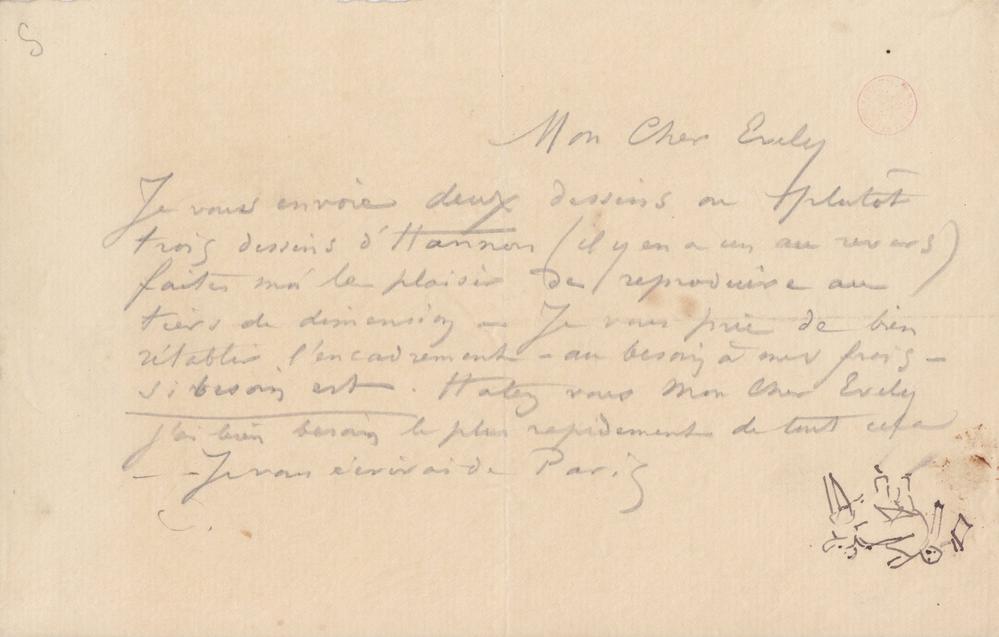 Mon Cher Evely
Je vous envoie deux dessins ou plutôt
trois dessins d'Hannon (il y en a un au revers)
faites moi le plaisir de reproduire au
tiers de dimension – Je vous prie de bien
rétablir l'encadrement – au besoin à mes frais –
si besoin est. Hatez vous Mon Cher Evely
j'ai bien besoin le plus rapidement de tout cela
– – Je vous écrirai de Paris